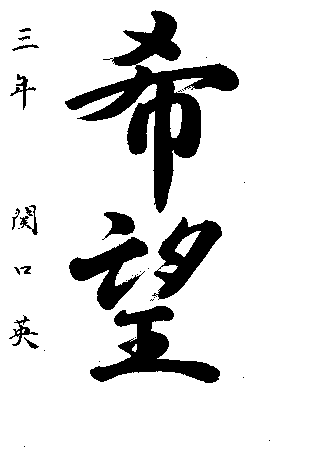 希望
三年 関口英